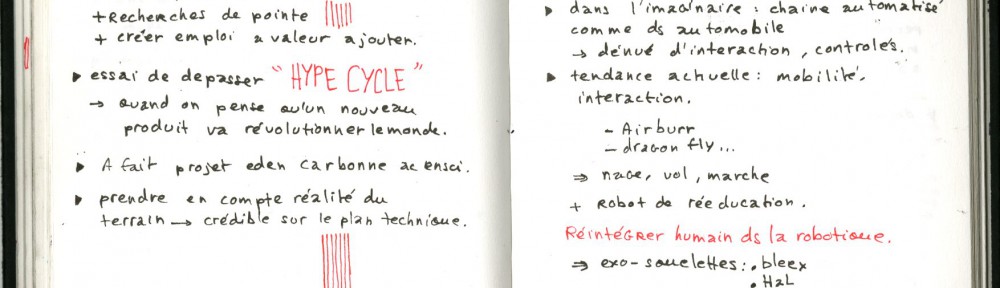 +Recherches de pointe
+ créer emploi a valeur ajouter.
▸ essai de depasser "HYPE CYCLE"
→ quand on pense qu'un nouveau
produit va révolutionner le monde.
▸ A fait projet eden carbonne ac ensci.
▸ prendre en compte réalité du
terrain → crédible sur le plan technique.
▸ dans l'imaginaire : chaine automatisé
comme ds automobile
→ dénué d'interaction, controlés.
▸ tendance actuelle : mobilité.
interaction.
- Airburr
- dragon fly...
⇒ nage, vol, marche
+ Robot de rééducation.
Réintégrer humain ds la robotique.
⇒ exo-squelettes : . bleex
. HAL